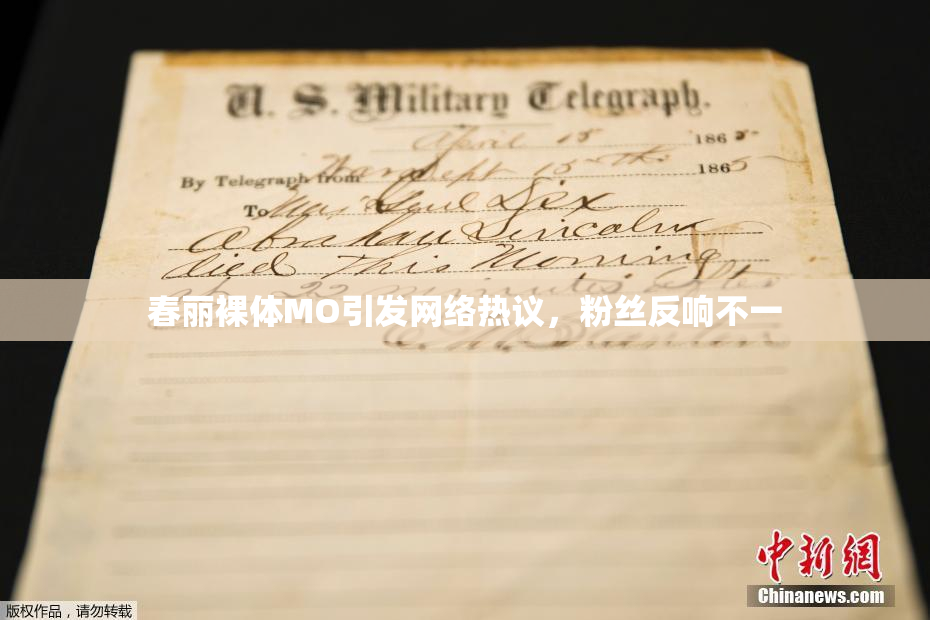 U. S. Military Telegraph.
April 15 1865
By Telegraph from War Dept 15th 1865
To Maj Genl Dix
Abraham Lincoln
died This Morning
at 22 minutes after
春丽裸体MO引发网络热议，粉丝反响不一
中新网
Chinanews.com
版权作品，请勿转载